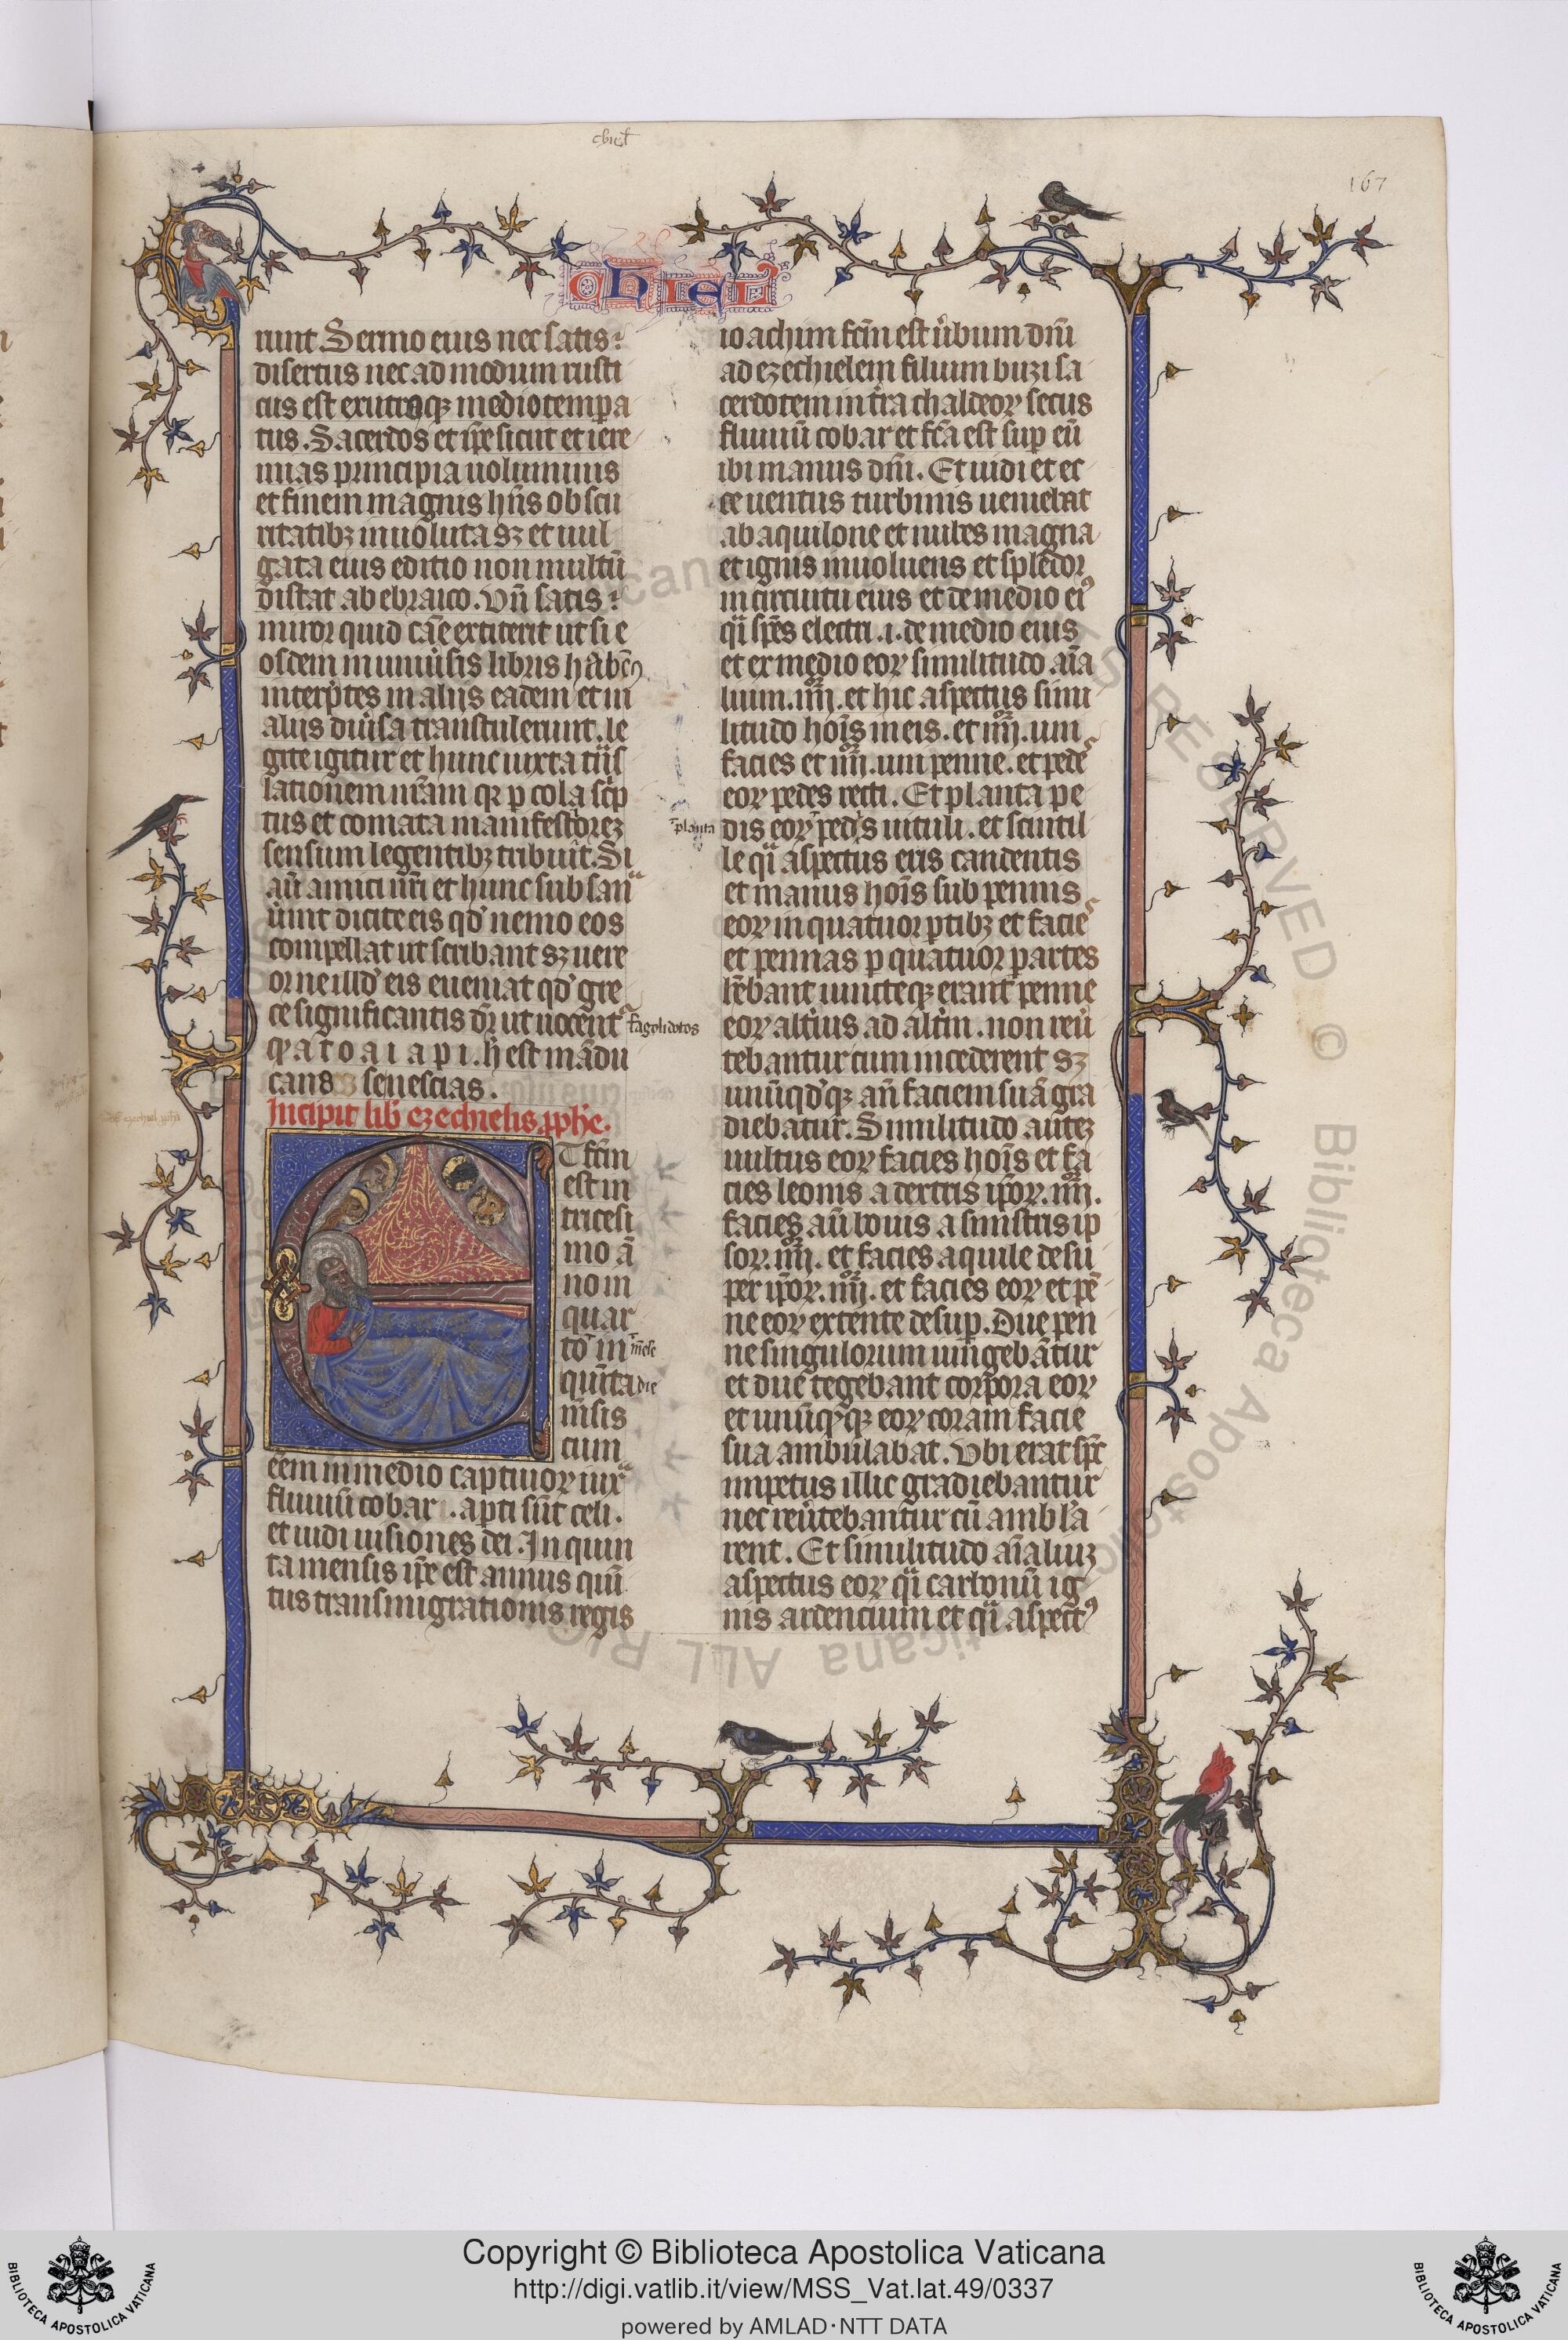 chiel
167
CHIEL
nunt. Sermo eius nec satis
disertus nec admodum rusti
cus est ex utroqꝫ medio temꝑa
tus. Sacerdos et ip̄e sicut et iere
mias principia uoluminis
et finem magnis hn̄s obscu
ritatibꝫ inuoluta sꝫ et uul
gata eius editio non multū
distat ab ebraico. Vn̄ satis
miror quid cāe extiterit ut si e
osdem in uniu͛sis libris habēꝰ
interp̄tes in alijs eadem et in
aliis diu͛sa transtulerunt. le
gite igitur et hunc iuxta tn̄s
lationem nr̄am qꝛ ꝑ cola sc͛p
tus et comata manifestiorez
sensum legentibꝫ tribuit. Si
aū amici nr̄i et hunc subsan
u͛int dicite eis qd̓ nemo eos
compellat ut scribant sꝫ uere
or ne illd̓ eis eueniat qd̓ gre
ce significantius dr̄ ut uocent͛ fagolidotos
canes senescias.
Incipit lib̄ ezechielis ꝓph̄e.
ET fc̄m
est in
tricesi
mo ā
no in
quar
to in mēse
quīta die
mēsis
cum
eēm in medio captiuoꝝ iux
fluuiū cobar. aꝑti sūt celi.
et uidi uisiones dei. In quin
ta mensis ip̄e est annus quī
tus transmigrationis regis
ioachim fc̄m est u͛bum dn̄i
ad ezechielem filium buzi sa
cerdotem in t͛ra chaldeoꝝ secus
fluuiū cobar et fc̄a est suꝑ eū
ibi manus dn̄i. Et uidi et ec
ce uentus turbinis ueniebat
ab aquilone et nubes magna
et ignis inuoluens et splēdor
in circuitu eius et de medio eiꝰ
qͣi sp̄es electri .i. de medio eius
et ex medio eoꝝ similitudo aīa
lium .iiii. et hic aspectus simi
litudo hoīs in eis. et iiii. uni
facies et iiii. uni penne. et pedes
eoꝝ pedes recti. Et planta pe
planta dis eoꝝ pedis uituli. et scintil
le qͣi aspectus eris candentis
et manus hoīs sub pennis
eoꝝ in quatuor ꝑtibꝫ et facies
et pennas ꝑ quatuor partes
h̄ebant iuncteqꝫ erant penne
eoꝝ alt͛ius ad alt͛m. non reu͛
tebantur cum incederent sꝫ
unūqd̓qꝫ an̄ faciem suā gra
diebatur. Similitudo autez
uultus eoꝝ facies hoīs et fa
cies leonis a dextris ip̄oꝝ. iiii.
facies aū bouis a sinistris ip
soꝝ. iiii. et facies aquile desu
per ip̄oꝝ. iiii. et facies eoꝝ et pē
ne eoꝝ extente desuꝑ. Due pen
ne singulorum iungebātur
et due tegebant corpora eoꝝ
et unūqd̓qꝫ eoꝝ coram facie
sua ambulabat. Vbi erat sp̄c
impetus illic gradiebantur
nec reu͛tebantur cū ambl̓a
rent. Et similitudo aīaliuꝫ
aspectus eoꝝ qͣi carbonū ig
nis ardencium et qͣi aspectꝰ
Copyright © Biblioteca Apostolica Vaticana
http://digi.vatlib.it/view/MSS_Vat.lat.49/0337
powered by AMLAD·NTT DATA
BIBLIOTECA APOSTOLICA VATICANA
BIBLIOTECA APOSTOLICA VATICANA